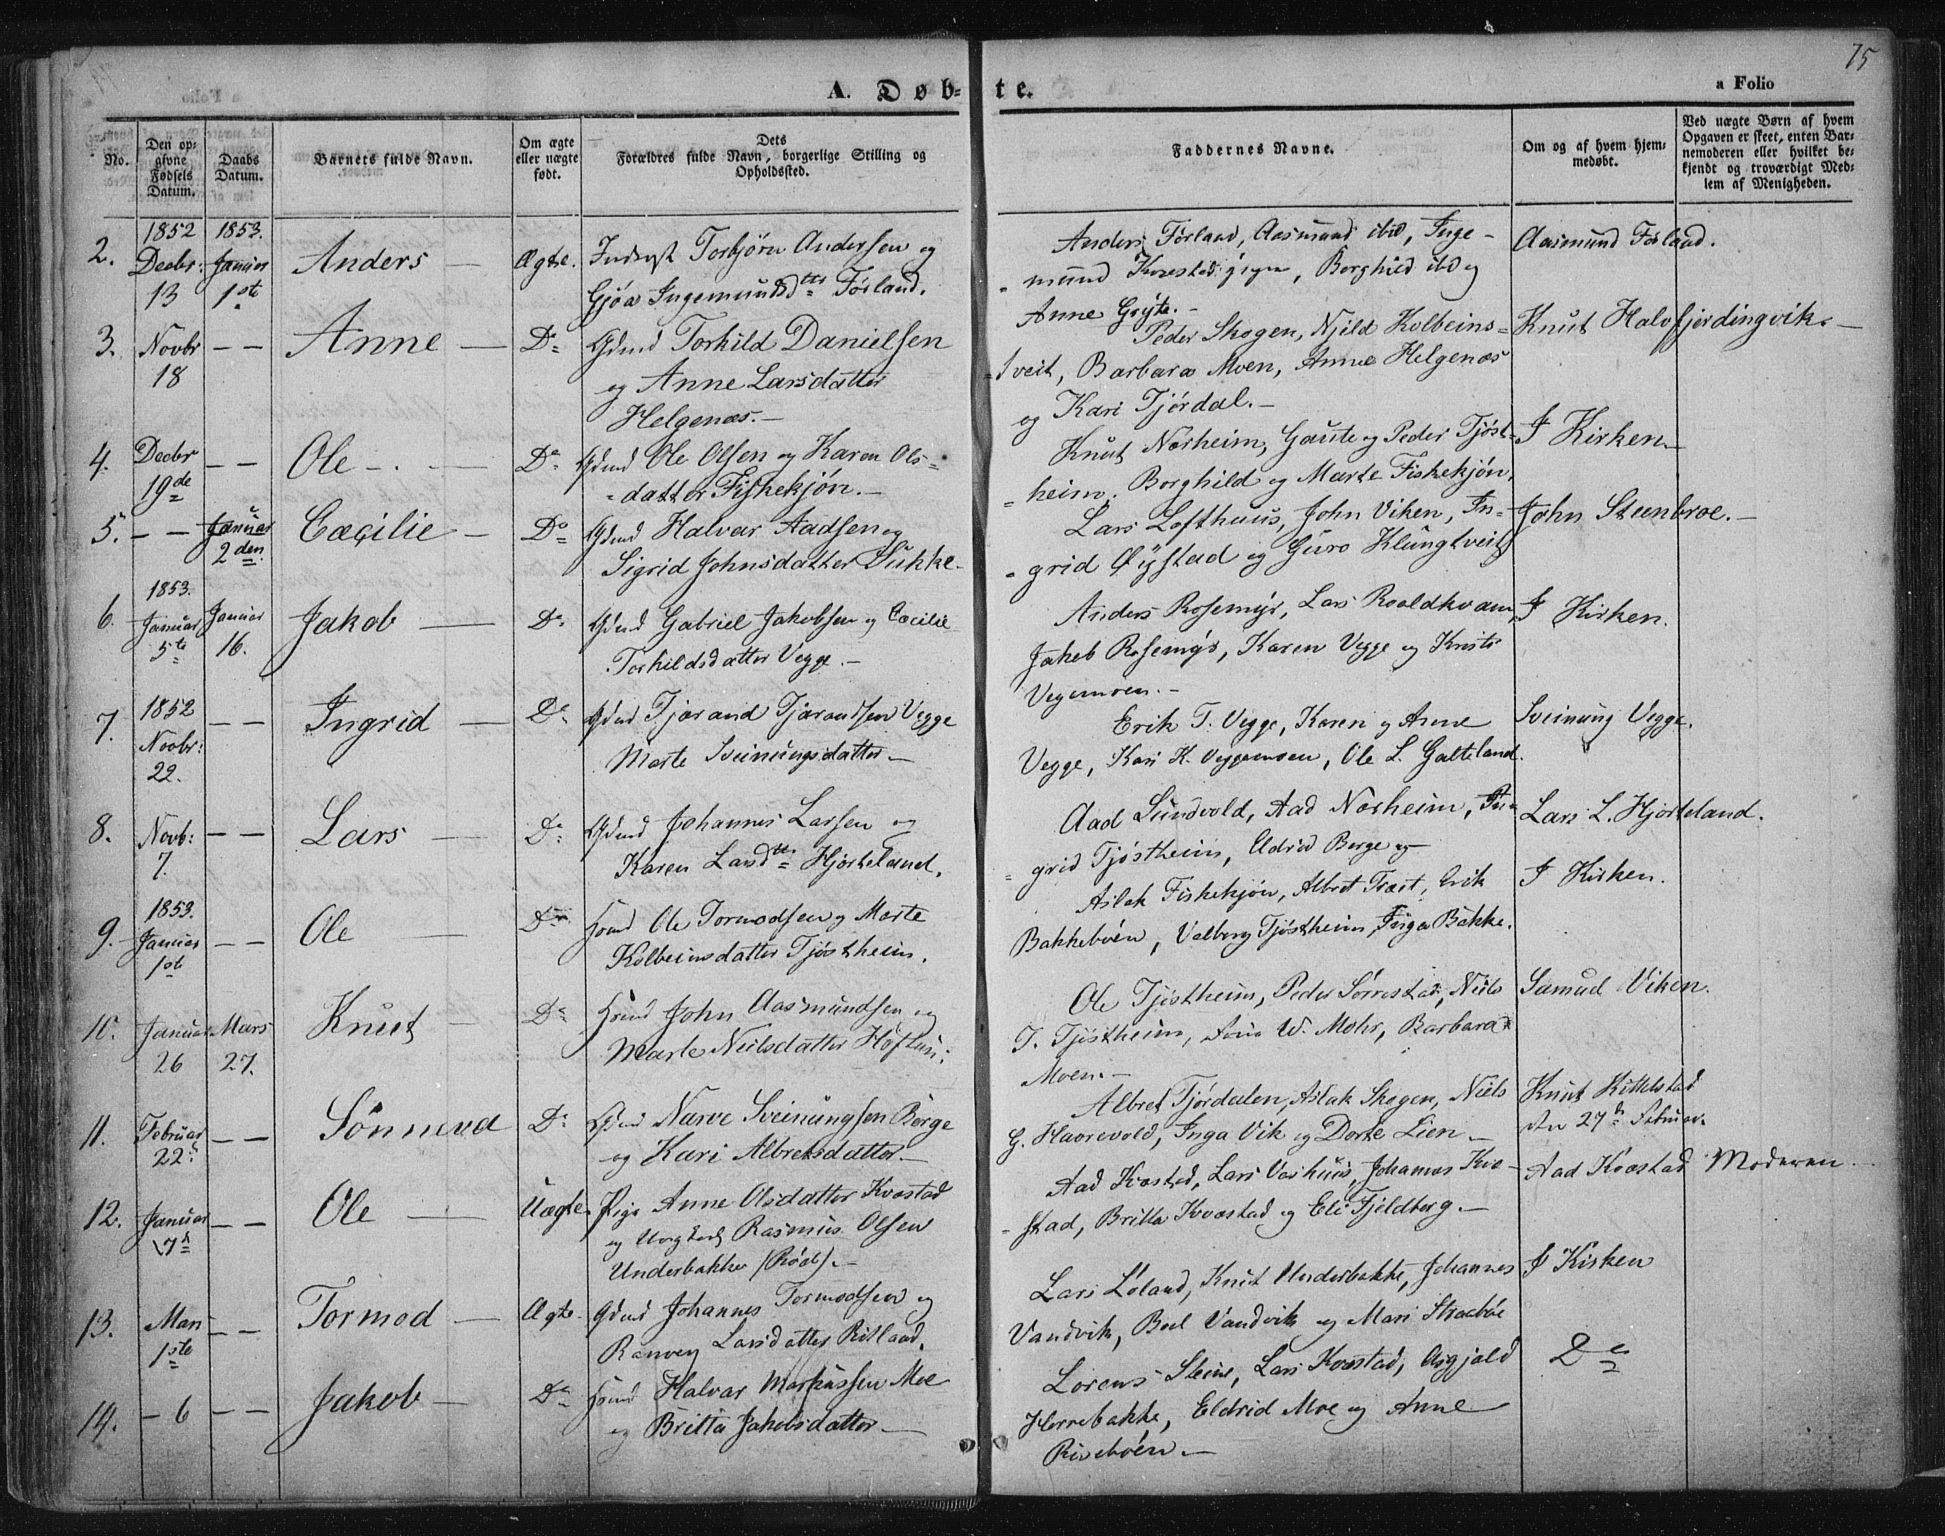 75
A. Døb-
te.
a Folio
No.
Den op-
givne
Fødsels
Datum.
Daabs
Datum.
Barnets fulde Navn.
Om ægte
eller uægte
født.
Dets
Forældres fulde Navn, borgerlige Stilling og
Opholdssted.
Faddernes Navne.
Om og af hvem hjem-
medøbt.
Ved uægte Børn af hvem
Opgaven er skeet, enten Bar-
nemoderen eller hvilket be-
kjendt og troværdigt Med-
lem af Menigheden.
2.
1852
Decbr:
13
1853.
Januar
1ste
Anders —
Ægte.
Torbjørn Andersen og
Gjøa Ingemundsdtr Førland.
Anders Førland, Aasmund ibid, Inge-
mund Kvæstad, Borghild ibd og
Anne Grÿte.-
Aasmund Førland.
3.
Novbr
18
— —
Anne —
Do
Gdmd Torkild Danielsen
og Anne Larsdatter
Helgenæs.—
Peder Skogen, Njeld Kolbeins-
tveit, Barbara Moen, Anne Helgenæs
og Kari Tjørdal.—
Knut Halvfjerdingvik.—
4.
Decbr
19de
— —
Ole —
Do
Gdmd Ole Olsen og Karen Ols-
datter Fiskekjøn.—
Knut Norheim, Gaute og Peder Tjøst-
heim, Borghild og Marte Fiskekjøn,
I Kirken
5.
— —
Januar
2den.
Cæcilie —
Do
Gdmd Halvar Aadsen og
Sigrid Johnsdatter Dukke.
Lars Lofthuus, John Viken, In-
grid Øÿstad og Guro Klungtveit
John Steenbroe.—
6.
1853.
Januar
5te
Januar
16.
Jakob —
Do
Gdmd Gabriel Jakobsen og Cæcilie
Torkildsdatter Vegge.—
Anders Rosemÿr, Lars Roaldkvam,
Jakob Rosemÿr, Karen Vegge og Kristi
Vegemoen.—
I Kirken.
7.
1852
Novbr:
22.
— —
Ingrid —
Do
Gdmd Tjærand Tjærandsen Vegge
Marte Sveinungsdatter.—
Erik T. Vegge, Karen og Anne
Vegge, Kari K. Veggemoen, Ole L. Galteland.
Sveinung Vegge.
8.
Novb:
7.
— —
Lars —
Do
Gdmd Johannes Larsen og
Karen Larsdtr Hjorteland.
Aad Sundvold, Aad Norheim, In-
grid Tjøstheim, Eldrid Berge og
Lars L. Hjorteland.
9.
1853.
Januar
1ste
— —
Ole —
Do
Hmd Ole Tormodsen og Marte
Kolbeinsdatter Tjøstheim.
Aslak Fiskekjøn, Albret Træet, Erik
Bakkebøen, Valborg Tjøstheim, Inga Bakke.
I Kirken.
10.
Januar
26
Mars
27.
Knut —
Do
Hmd John Aasmundsen og
Marte Neilsdatter
Ole Tjøstheim, Peder Sørrestad, Niels
T. Tjøstheim, W. Mohr, Barbara
Moen.—
Samuel Viken.
11.
Februar
22
— —
Sønneva
Do
Gdmd Narve Sveinungsen Berge
og Kari Albretsdatter.—
Albret Tjørdalen, Aslak Skogen, Niels
G. Haarevold, Inga Vik og Dorte Lien.—
Knut Kittelstad
den 27de Februar.
12.
Januar
17d
— —
Ole —
Uægte.
Pige Anne Olsdatter Kvæstad
og Ungkarl Rasmus Olsen
Underbakke (Rød).—
Aad Kvæstad, Lars Vashuus, Johannes Kvæ-
stad, Britta Kvæstad og Eli Fjeldberg.—
Aad Kvæstad
Moderen
13.
Mars
1ste
— —
Tormod —
Ægte.
Gdmd Johannes Tormodsen og
Ranveg Larsdatter Ritland.
Lars Løland, Knut Underbakke, Johannes
Vandvik, Boel Vandvik og Mari Straabøe
I Kirken
14.
— 6
— —
Jakob —
Do
Hmd Halvar Markussen Moe
og Britta Jakobsdatter.—
Lorens Steine, Lars Kvæstad, Asgjald
Horrebakke, Eldrid Moe og Anne
Risebøen.—
Do